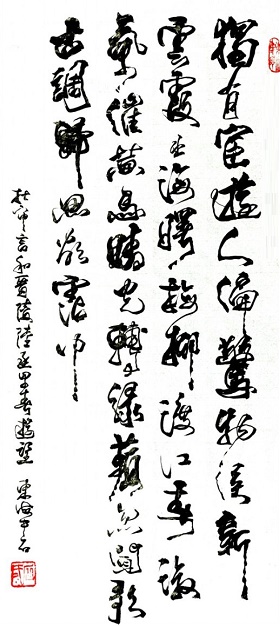 獨有宦遊人偏驚物候新
雲霞出海曙梅柳渡江春淑
氣催黄鳥晴光轉綠蘋忽聞歌
古調歸思欲霑巾
杜審言和晉陵陸丞早春遊望 東海